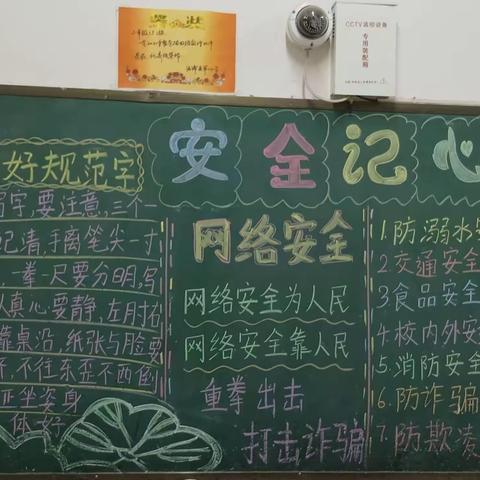 CCTV监控设备
专用装配箱
安全记心
好规范字
写字,要注意,三个一
记清,手离笔尖一寸
,一拳一尺要分明,写
认真心要静,左肘右
靠桌沿,纸张与脸要
平,不往东歪不西倒
正坐姿身
体好
网络安全
网络安全为人民
网络安全靠人民
重拳出击
打击诈骗
1.防溺水
2.交通安全
3食品安全
4.校内外安
5.消防安全
6.防诈骗
7.防欺凌